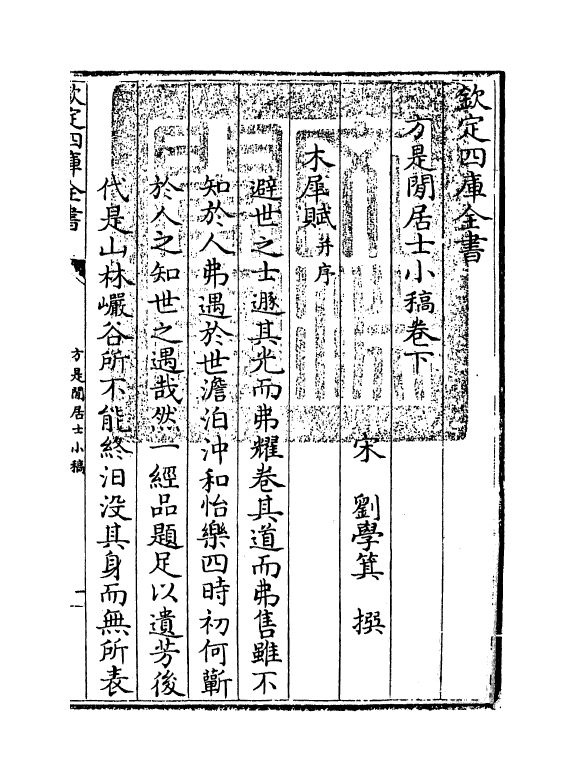 欽定四庫全書
方是閒居士小稿卷下
宋　劉學箕　撰
木犀賦并序
避世之士遯其光而弗耀卷其道而弗售雖不
知於人弗遇於世澹泊沖和怡樂四時初何蘄
於人之知世之遇哉然一經品題足以遺芳後
代是山林巖谷所不能終汩没其身而無所表
欽定四庫全書
方是閒居士小稿
一